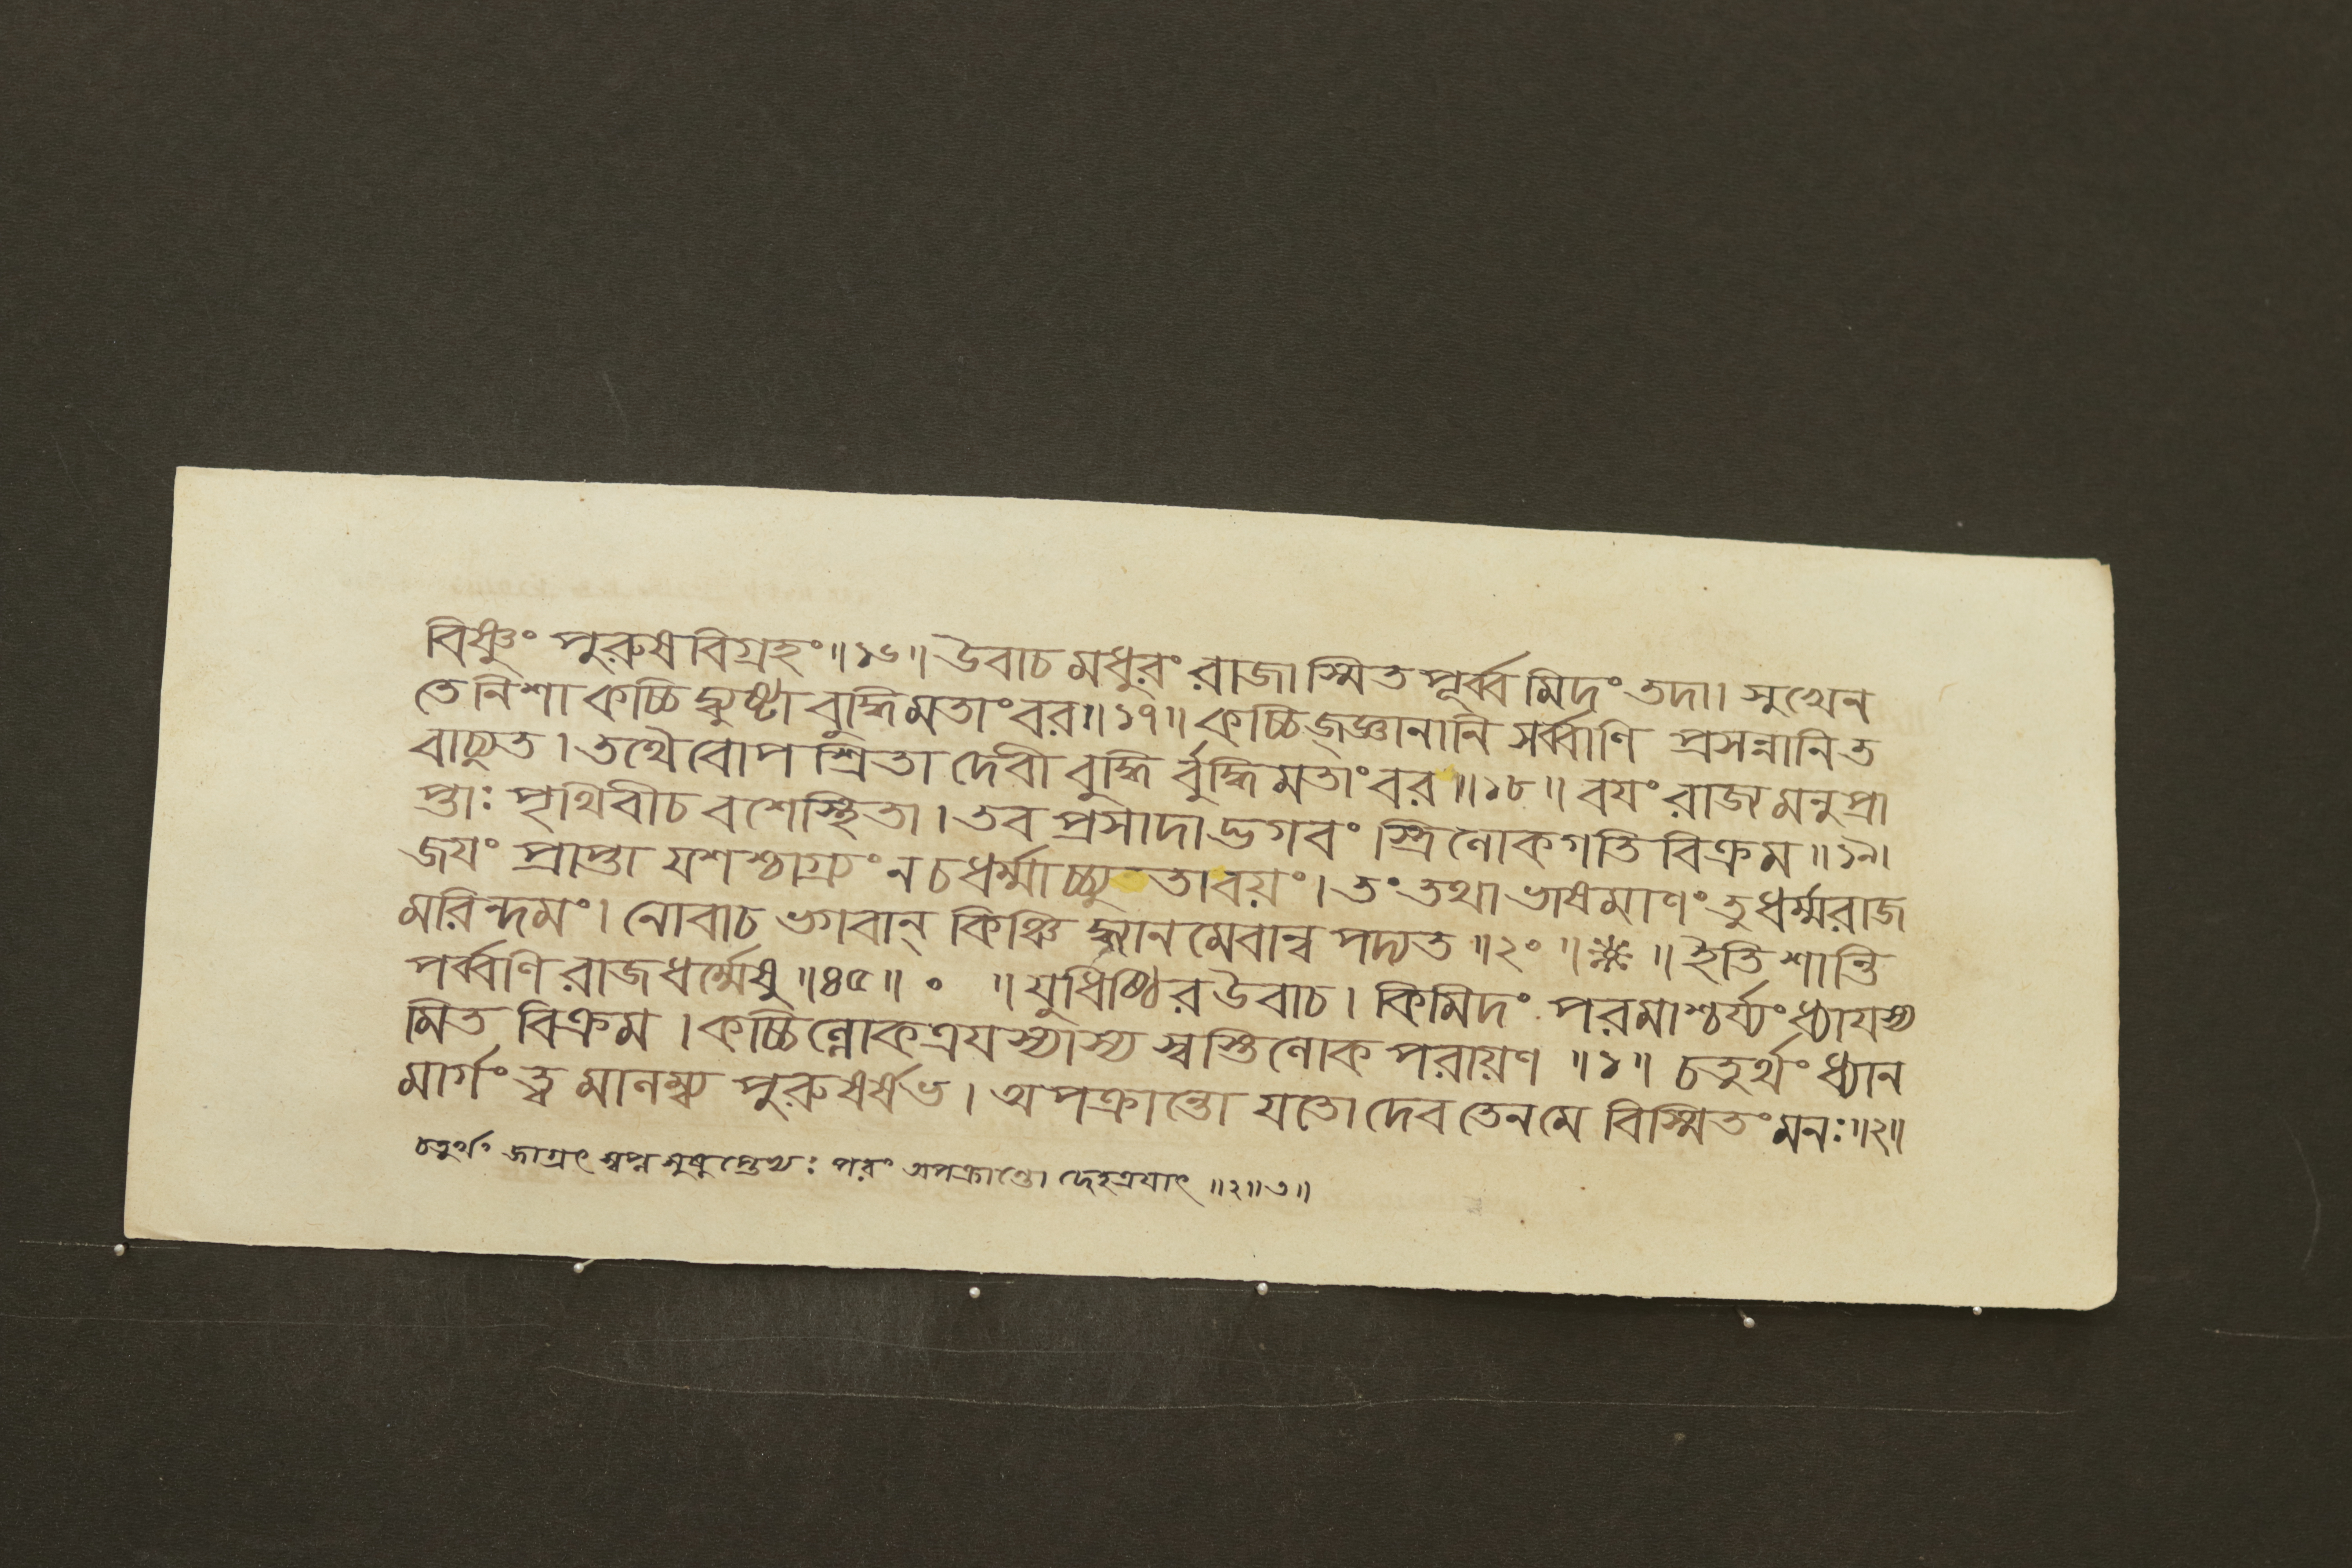 বিষ্ণুং পুরুষবিগ্রহং॥১৬॥ উবাচ মধুরং রাজা স্মিতপূর্ব্বমিদং তদা। সুখেন
তে নিশা কচ্চিদ্ব্যুষ্টা বুদ্ধিমতাংবর॥১৭॥ কচ্চিজ্জ্ঞানানি সর্ব্বাণি প্রসন্নানি ত
বাচ্যুত। তথৈবোপশ্রিতা দেবী বুদ্ধির্বুদ্ধিমতাংবর॥১৮॥ বযং রাজ্যমনুপ্রা
প্তাঃ পৃথিবীচ বশেস্থিতা। তব প্রসাদাদ্ভগবং স্ত্রিলোকগতিবিক্রম॥১৯।
জযং প্রাপ্তা যশশ্চাগ্র্যং নচধর্ম্মাচ্চ্যুতাবয়ং। তং তথা ভাষমাণং তু ধর্ম্মরাজ
মরিন্দমং। নোবাচ ভগবান্ কিঞ্চিদ্ধ্যানমেবান্বপদ্যত॥২০॥*॥ইতি শান্তি
পর্ব্বণি রাজধর্ম্মেষু॥৪৫॥ ০ ॥যুধিষ্ঠির উবাচ। কিমিদং পরমাশ্চর্য্যং ধ্যাযস্য
মিত বিক্রম। কচ্চিল্লোকত্রযস্যাস্য স্বস্তিলোক পরায়ণ॥১॥ চতুর্থং ধ্যান
মার্গং ত্বমালম্ব্য পুরুষর্ষভ। অপক্রান্তো যতো দেব তেন মে বিস্মিতং মনঃ॥২॥
চতুর্থং জাগ্রৎ স্বপ্ন সুষুপ্তেভ্যঃ পরং অপক্রান্তো দেহত্রযাৎ॥২॥৩॥